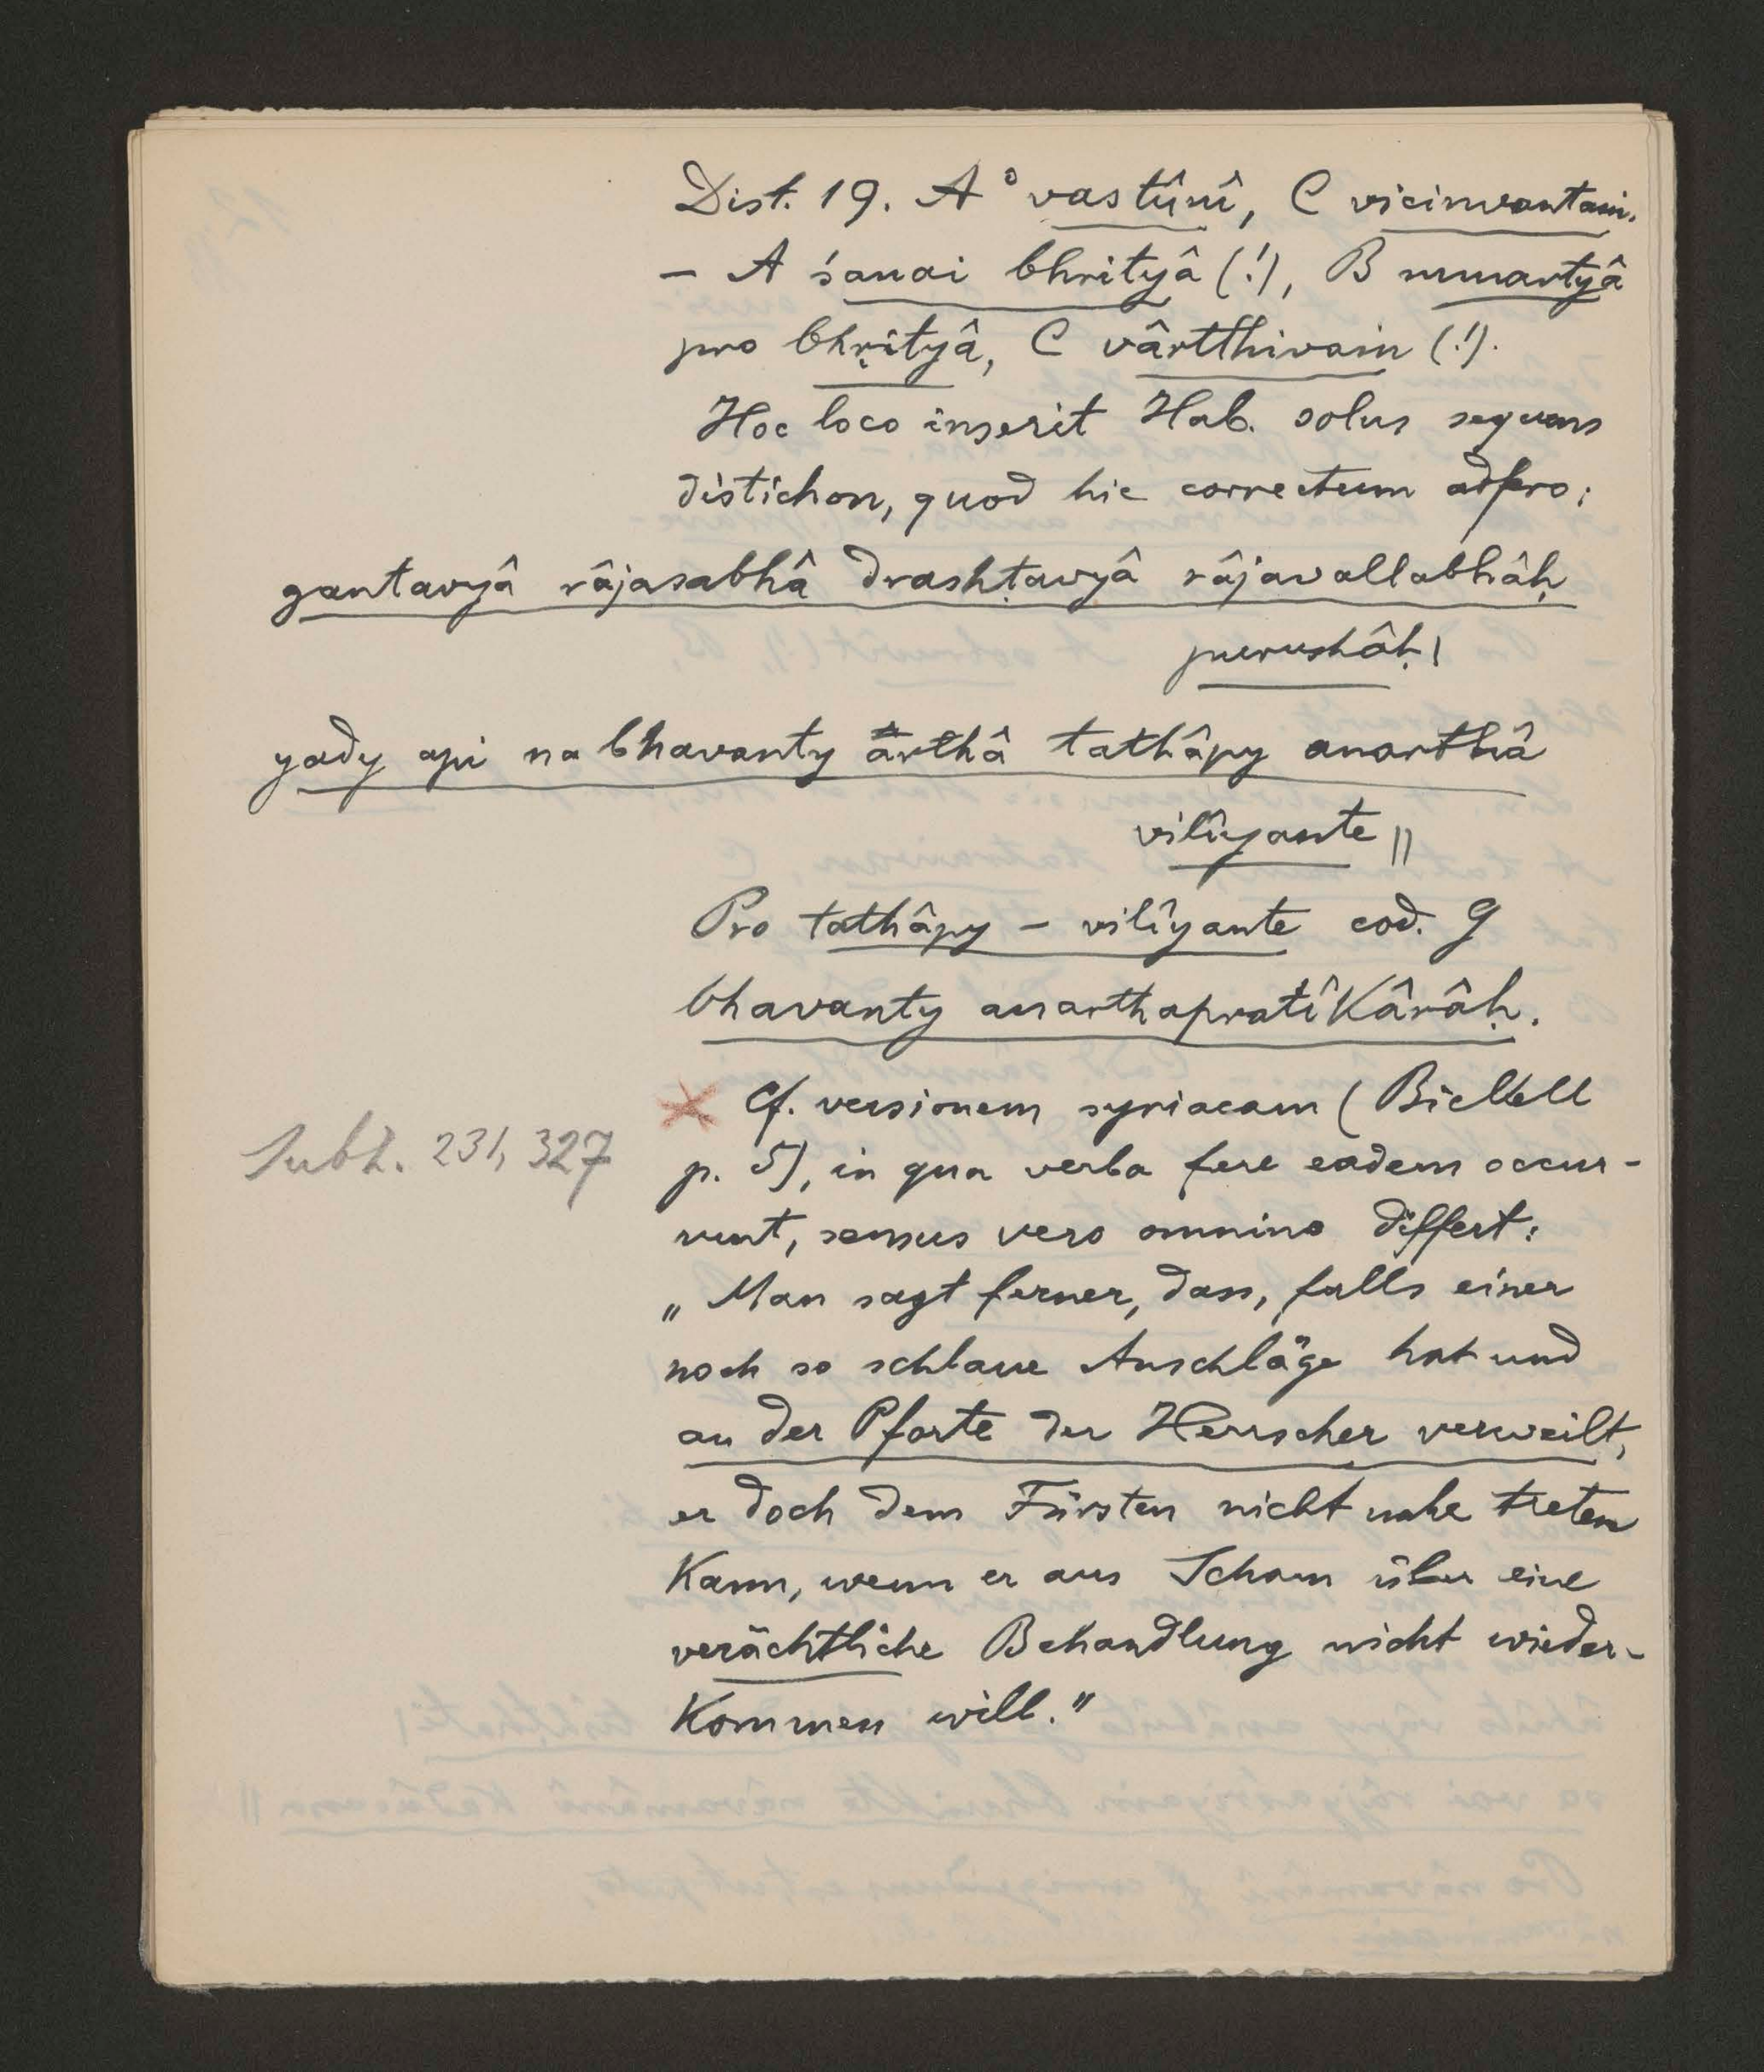 Dist. 19. A °vastûni, C vicinvantain.
– A śanai bhrityâ (!), B munartyâ
pro bhṛityâ, C vârtthivain (!).
Hoc loco inserit Hab. solus sequens
distichon, quod hic correctum adfero:
gantavyâ râjasabhâ drashṭavyâ râjavallabhâḥ
purushâḥ |
yady api na bhavanty arthâ tathâpy anarthâ
vilîyante ||
Pro tathâpy – vilîyante cod. G
bhavanty anarthapratîkârâḥ.
× Cf. versionem syriacam (Bickell
Subh. 231, 327
p. 5), in qua verba fere eadem occur-
runt, sensus vero omnino differt:
„Man sagt ferner, dass, falls einer
noch so schlaue Anschläge hat und
an der Pforte der Herrscher verweilt,
er doch dem Fürsten nicht nahe treten
kann, wenn er aus Scham über eine
verächtliche Behandlung nicht wieder-
kommen will."